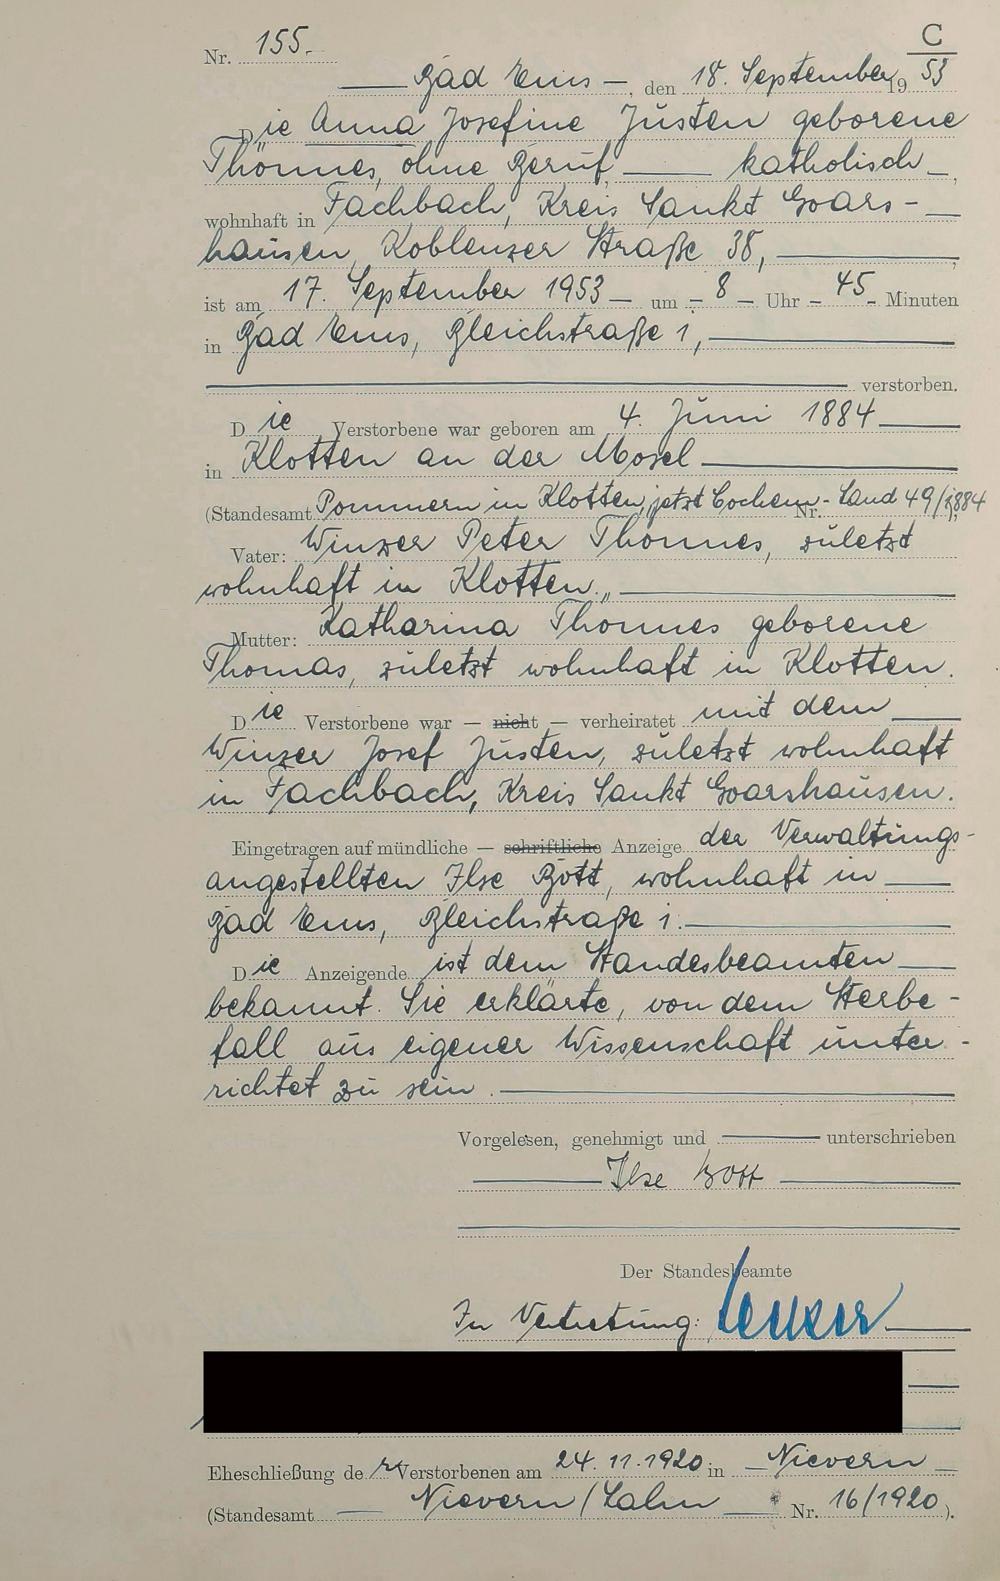 C
Nr. 155.
Bad Ems —, den 18. September 19 53
Die Anna Josefine Justen geborene
Thönnes, ohne Beruf, — katholisch —,
wohnhaft in Fachbach, Kreis Sankt Goars-
hausen, Koblenzer Straße 38,
ist am 17. September 1953 — um — 8 — Uhr — 45 — Minuten
in Bad Ems, Bleichstraße 1,
verstorben.
Die Verstorbene war geboren am 4. Juni 1884
in Klotten an der Mosel
(Standesamt Pommern in Klotten, jetzt Cochem-Land Nr. 49/1884
Vater: Winzer Peter Thönnes, zuletzt
wohnhaft in Klotten.,
Mutter: Katharina Thönnes geborene
Thomas, zuletzt wohnhaft in Klotten.
Die Verstorbene war — nicht — verheiratet mit dem
Winzer Josef Justen, zuletzt wohnhaft
in Fachbach, Kreis Sankt Goarshausen.
Eingetragen auf mündliche — schriftliche Anzeige der Verwaltungs-
angestellten Ilse Bott, wohnhaft in
Bad Ems, Bleichstraße 1.
Die Anzeigende ist dem Standesbeamten
bekannt. Sie erklärte, von dem Sterbe-
fall aus eigener Wissenschaft unter-
richtet zu sein.
Vorgelesen, genehmigt und — unterschrieben
Ilse Bott
Der Standesbeamte
In Vertretung:
Eheschließung der Verstorbenen am 24.11.1920 in — Nievern —
(Standesamt — Nievern/Lahn — Nr. 16/1920).